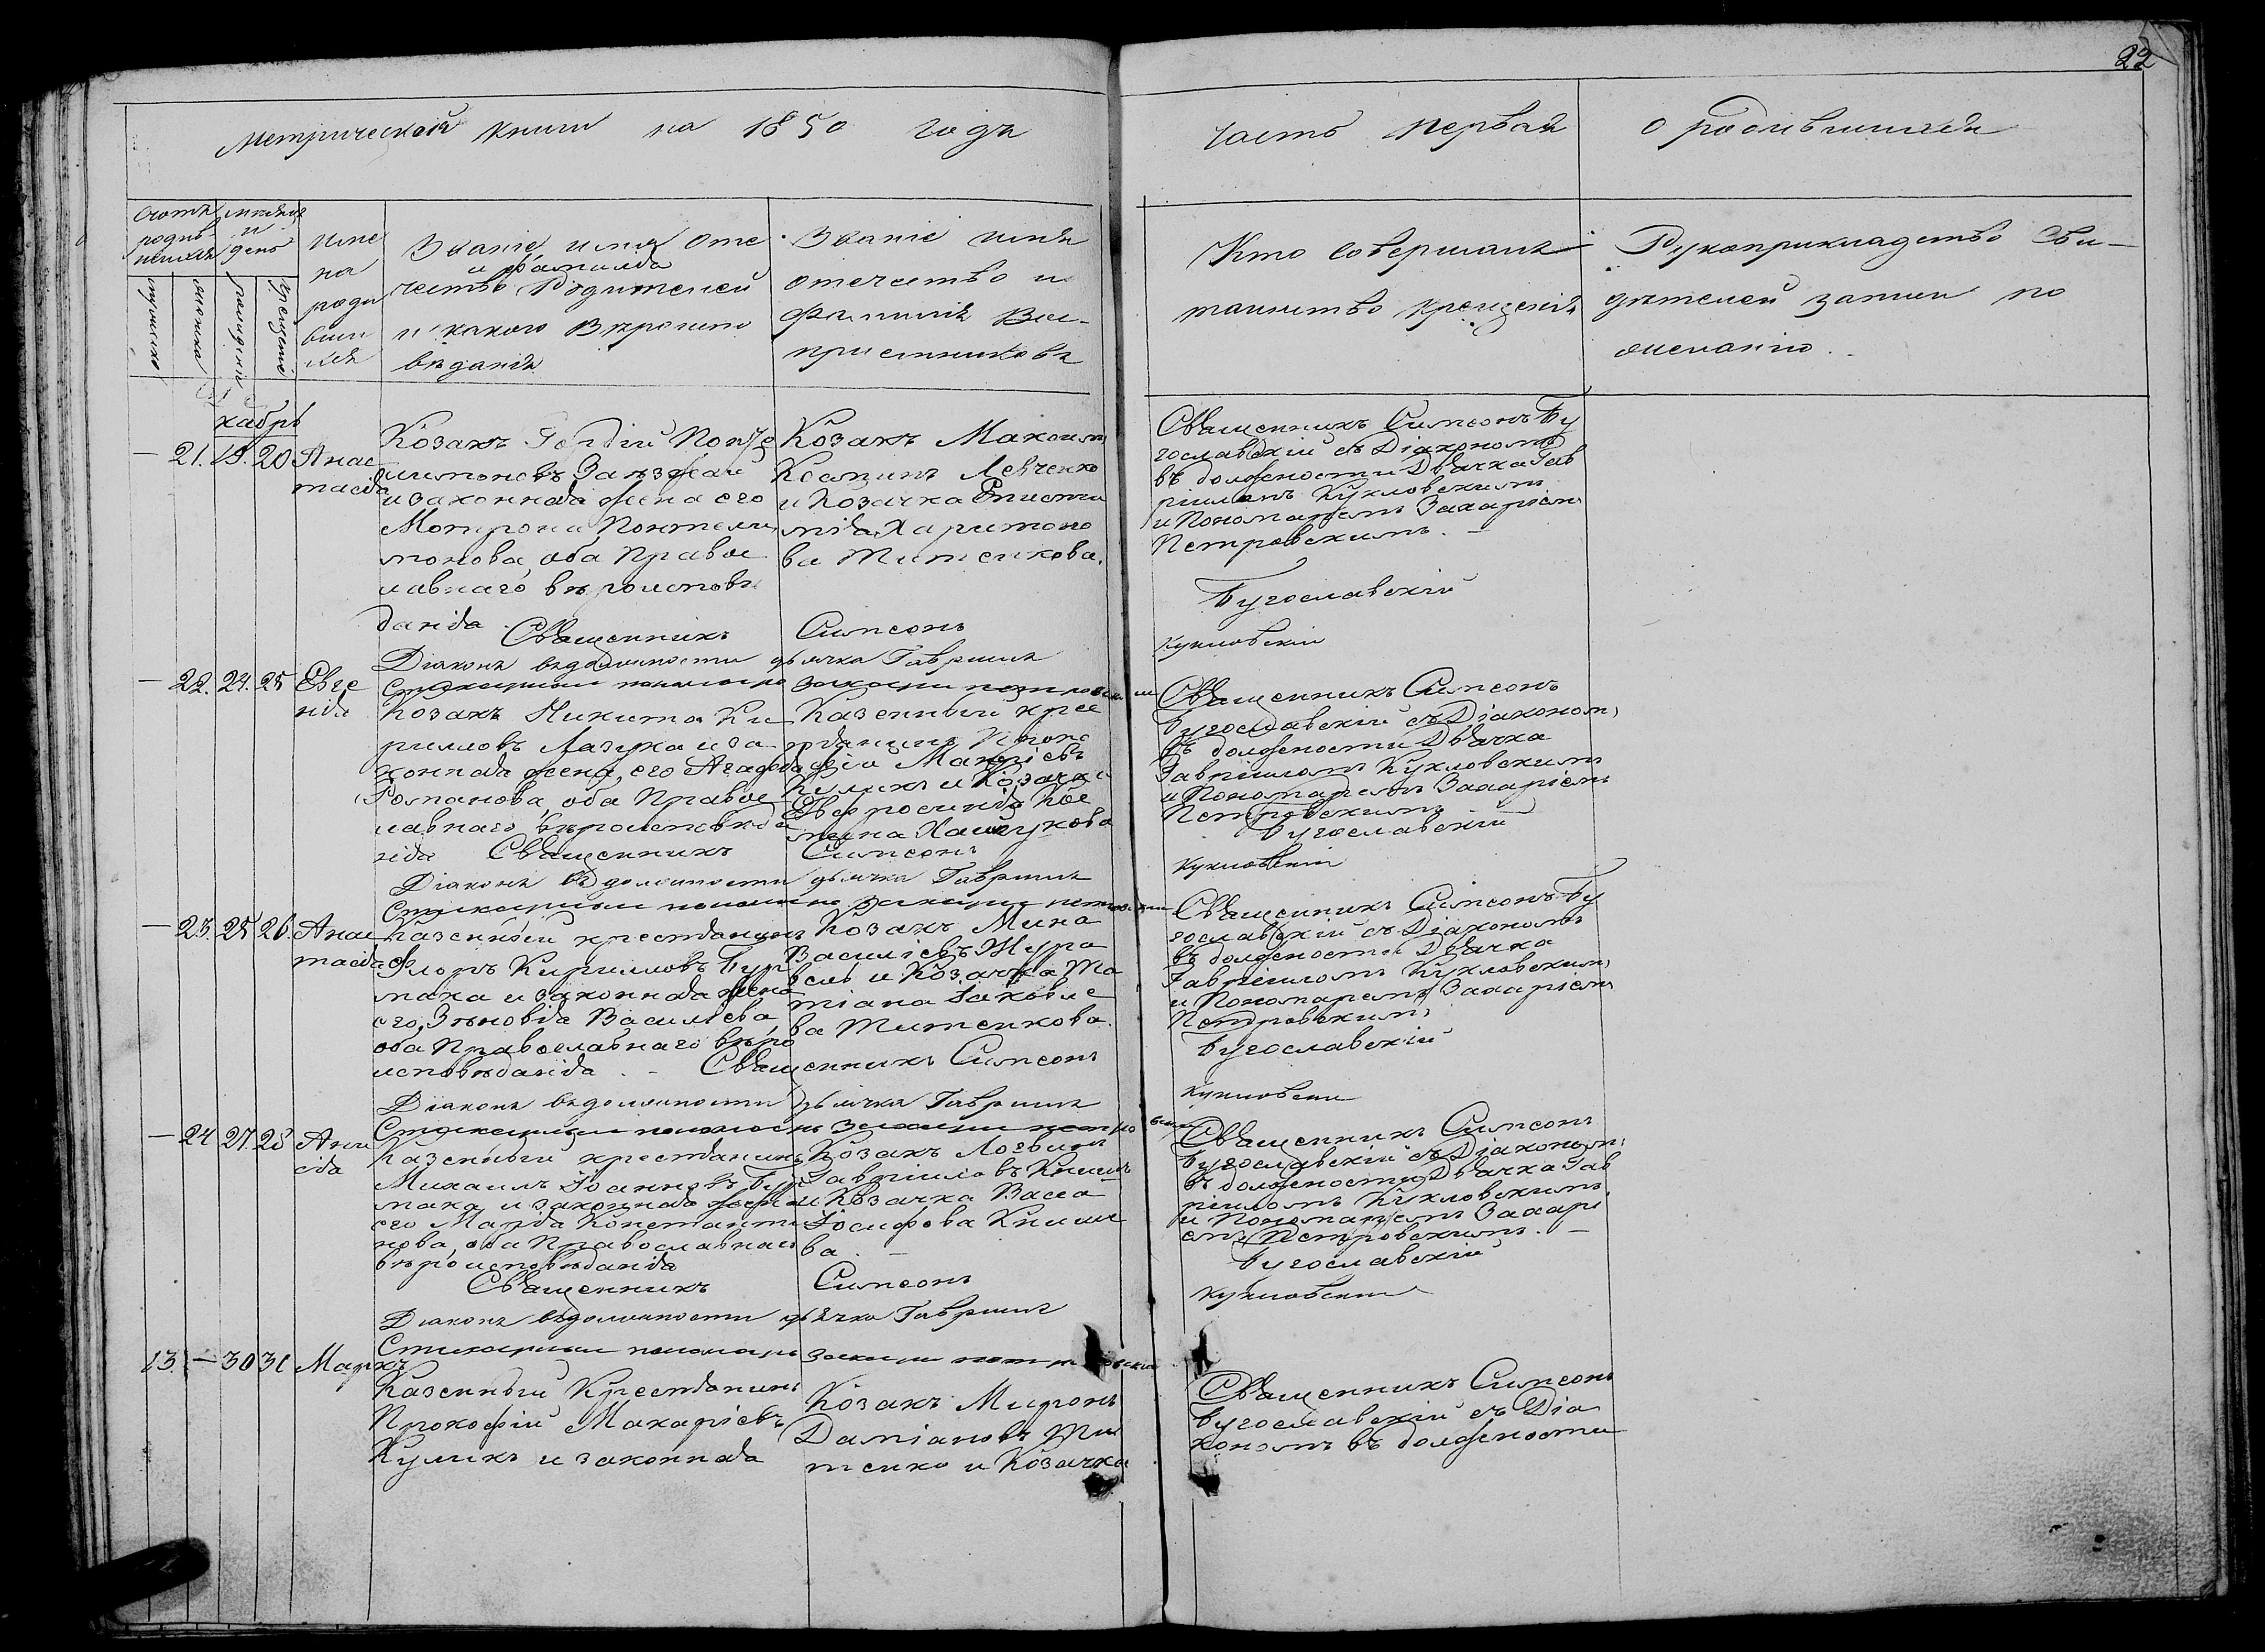 22
Метрической книги на 1850 годъ
часть первая о родившихся
счотъ родив-
шихся
мѣсяцъ
и
день
мужеска
женска
рожденія
крещенія
Име
на
роди
вших
ся
Званіе имя оте
и фамилія
чество Родителей
и какого Вѣроиспо
вѣданія
Званіе имя
отечество и
фамилія Вос-
приемниковъ
Кто совершалъ
таинство крещенія
Рукоприкладство Сви-
дѣтелей записи по
желанію.
кабрь
— 21. 19. 20 Анас
тасія
Козакъ Гордій
и законная жена его
Мотрона Пантели
монова, оба Правос
лавнаго вѣроисповѣ
данія
Козакъ Максим
Косминъ Левченко
и Козачка Еписти
мія Харитоно
ва Титенкова.
Священникъ Симеонъ Бу
гославскій съ Діакономъ
въ должности Дьячка Гав
ріиломъ Кукловскимъ
и Пономаремъ Захаріем
Петровскимъ. —
Священникъ Симеонъ Бугославскій
Діаконъ въ должности дьячка Гавріилъ Кукловскій
Стихарный пономарь Захарій Петровскій
— 22. 24. 25 Евге
нія
Козакъ Никита Ки
рилловъ Лазука и за
конная жена его Агафія
Романова, оба Правос
лавнаго вѣроисповѣда
нія
Казенный крес
тьянинъ Проко
фій Макаріевъ
Куликъ и Козачка
Евфросинія Кос
мина
Священникъ Симеонъ
Бугославскій съ Діаконом
въ должности Дьячка
Гавріиломъ Кукловскимъ
и Пономаремъ Захаріемъ
Петровскимъ
Священникъ Симеонъ Бугославскій
Діаконъ въ должности дьячка Гавріилъ Кукловскій
Стихарный пономарь Захарій Петровскій
— 23. 25 26. Анас
тасія
Казенный крестьянинъ
Флоръ Кирилловъ Бур
мака и законная жена
его, Зѣновія Васильева,
оба Православнаго вѣро
исповѣданія. —
Козакъ Мина
Василіевъ Жура
вель и Козачка Та
тіана Іаковле
ва Титенкова.
Священникъ Симеонъ Бу
гославскій съ Діакономъ
въ должности Дьячка
Гавріиломъ Кукловским
и Пономаремъ Захаріем
Петровским
Священникъ Симеонъ Бугославскій
Діаконъ въ должности дьячка Гавріилъ Кукловскій
Стихарный пономарь Захарій Петровскій
— 24 27. 28 Анн
сія
Казенный крестьянинъ
Михаилъ Іоанновъ Бур
мака и законная жена
его Марія Константи
нова, оба Православнаго
вѣроисповѣданія
Козакъ Логвинъ
Гавріиловъ Книшъ
и Козачка Васса
Іосифова Книше
ва. —
Священникъ Симеонъ
Бугославскій съ Діаконом
въ должности Дьячка Гав
ріиломъ Кукловскимъ
и Пономаремъ Захарі
емъ Петровскимъ. —
Священникъ Симеонъ Бугославскій
Діаконъ въ должности дьячка Гавріилъ Кукловскій
Стихарный пономарь Захарій Петровскій
13. — 30 31 Маркъ
Казенный Крестьянинъ
Прокофій Макаріевъ
Куликъ и законная
Козакъ Миронъ
Даміановъ Ти
тенко и Козачка
Священникъ Симеонъ
Бугославскій съ Діа
кономъ въ должности